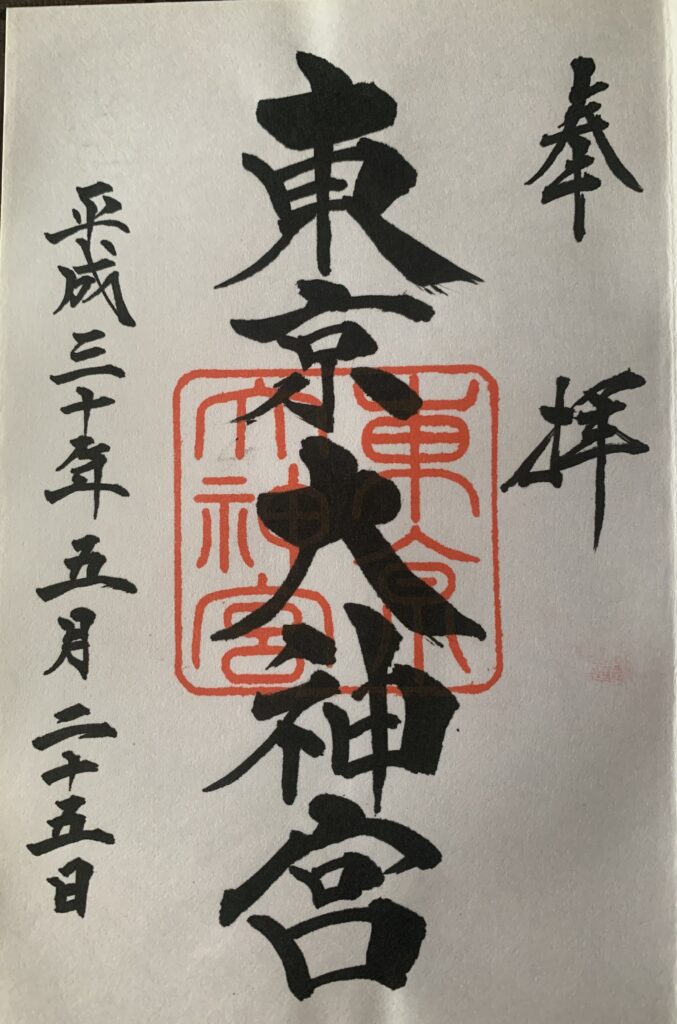 奉拝
東京大神宮
東京
大神宮
平成三十年五月二十五日